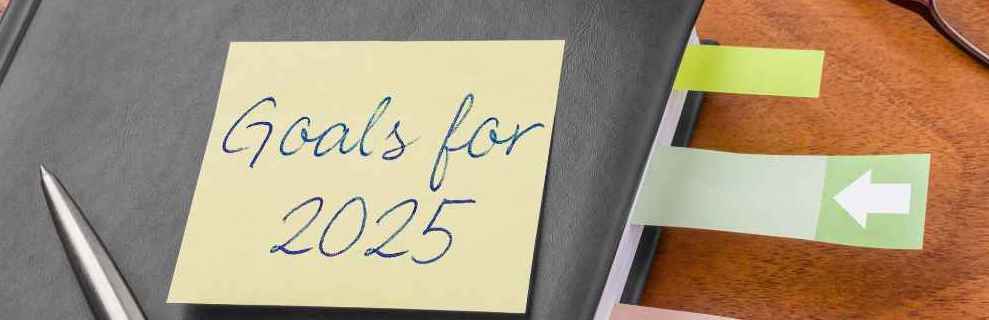 Goals for
2025